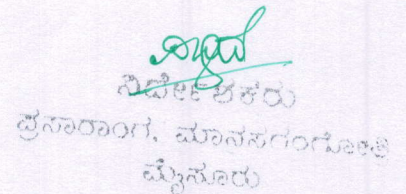 ನಿರ್ದೇಶಕರು
ಪ್ರಸಾರಾಂಗ, ಮಾನಸಗಂಗೋತ್ರಿ
ಮೈಸೂರು